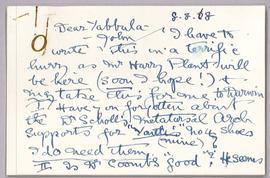 8-8-68
Dear Yabbula-
John, I have to
write this in a terrific
hurry as Mr Harry Plant will
be here (soon I hope!) &
may take this for one to Darwin
I. Have you forgotten about
the Dr Scholl's metatarsal Arch
Supports for "Yattie's" new shoes
(mine)
I do need them.
II Is Dr Coombs good? He seems